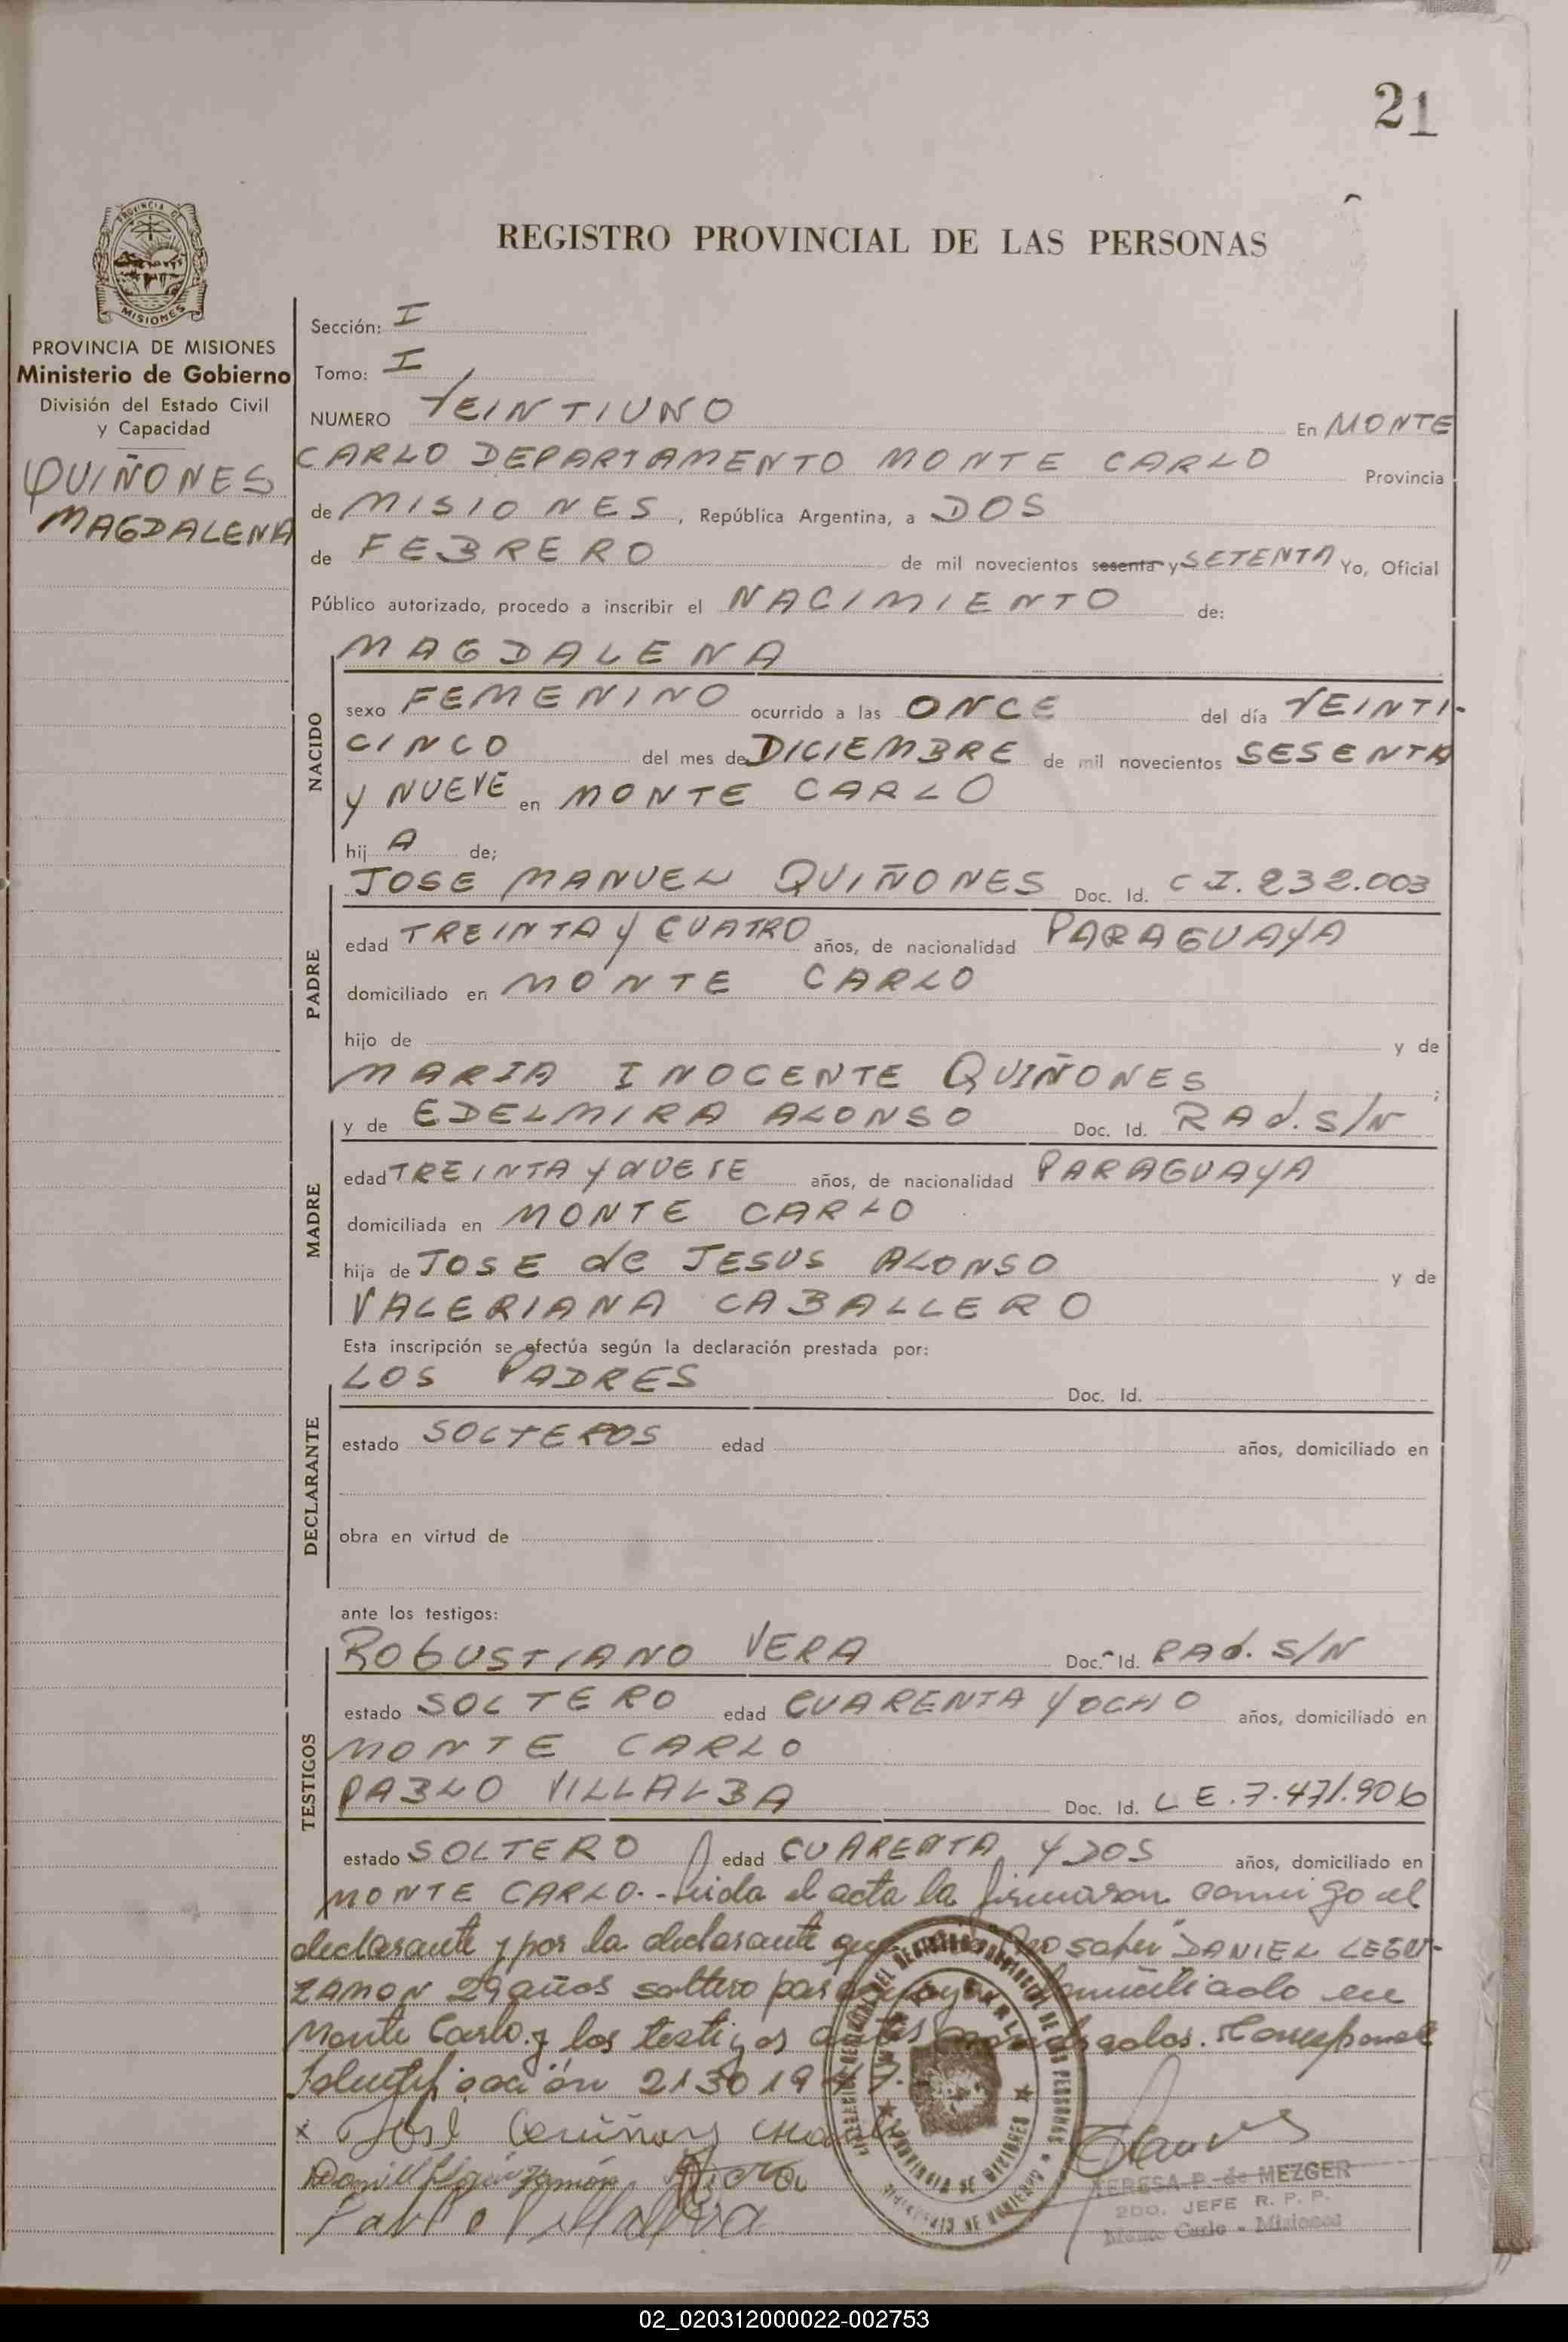 21
PROVINCIA DE
MISIONES
REGISTRO PROVINCIAL DE LAS PERSONAS
PROVINCIA DE MISIONES
Ministerio de Gobierno
División del Estado Civil
y Capacidad
QUIÑONES
MAGDALENA
Sección: I
Tomo: I
NUMERO VEINTIUNO En MONTE
CARLO DEPARTAMENTO MONTE CARLO Provincia
de MISIONES, República Argentina, a DOS
de FEBRERO de mil novecientos sesenta y SETENTA Yo, Oficial
Público autorizado, procedo a inscribir el NACIMIENTO de:
NACIDO
MAGDALENA
sexo FEMENINO ocurrido a las ONCE del día VEINTI-
CINCO del mes de DICIEMBRE de mil novecientos SESENTA
Y NUEVE en MONTE CARLO
hij A de;
PADRE
JOSE MANUEL QUIÑONES Doc. Id. C I. 232.003
edad TREINTA Y CUATRO años, de nacionalidad PARAGUAYA
domiciliado en MONTE CARLO
hijo de y de
MARIA INOCENTE QUIÑONES ;
MADRE
y de EDELMIRA ALONSO Doc. Id. RAd. S/N
edad TREINTA Y NUEVE años, de nacionalidad PARAGUAYA
domiciliada en MONTE CARLO
hija de JOSE de JESUS ALONSO y de
VALERIANA CABALLERO
Esta inscripción se efectúa según la declaración prestada por:
DECLARANTE
LOS PADRES Doc. Id.
estado SOLTEROS edad años, domiciliado en
obra en virtud de
ante los testigos:
TESTIGOS
ROBUSTIANO VERA Doc. Id. RAd. S/N
estado SOLTERO edad CUARENTA Y OCHO años, domiciliado en
MONTE CARLO
PABLO VILLALBA Doc. Id. L E. 7.471.906
estado SOLTERO edad CUARENTA Y DOS años, domiciliado en
MONTE CARLO.- Leida el acta la firmaron conmigo el
declarante y por la declarante que no saber DANIEL LEGUI-
ZAMON 29 años soltero domiciliado en
Monte Carlo y los testigos antes. Corresponde
213019
José Quiñones
Pablo Villalba
TERESA P. de MEZGER
2DO. JEFE R. P. P.
Monte Carlo - Misiones
PROVINCIA DE MISIONES
02_020312000022-002753